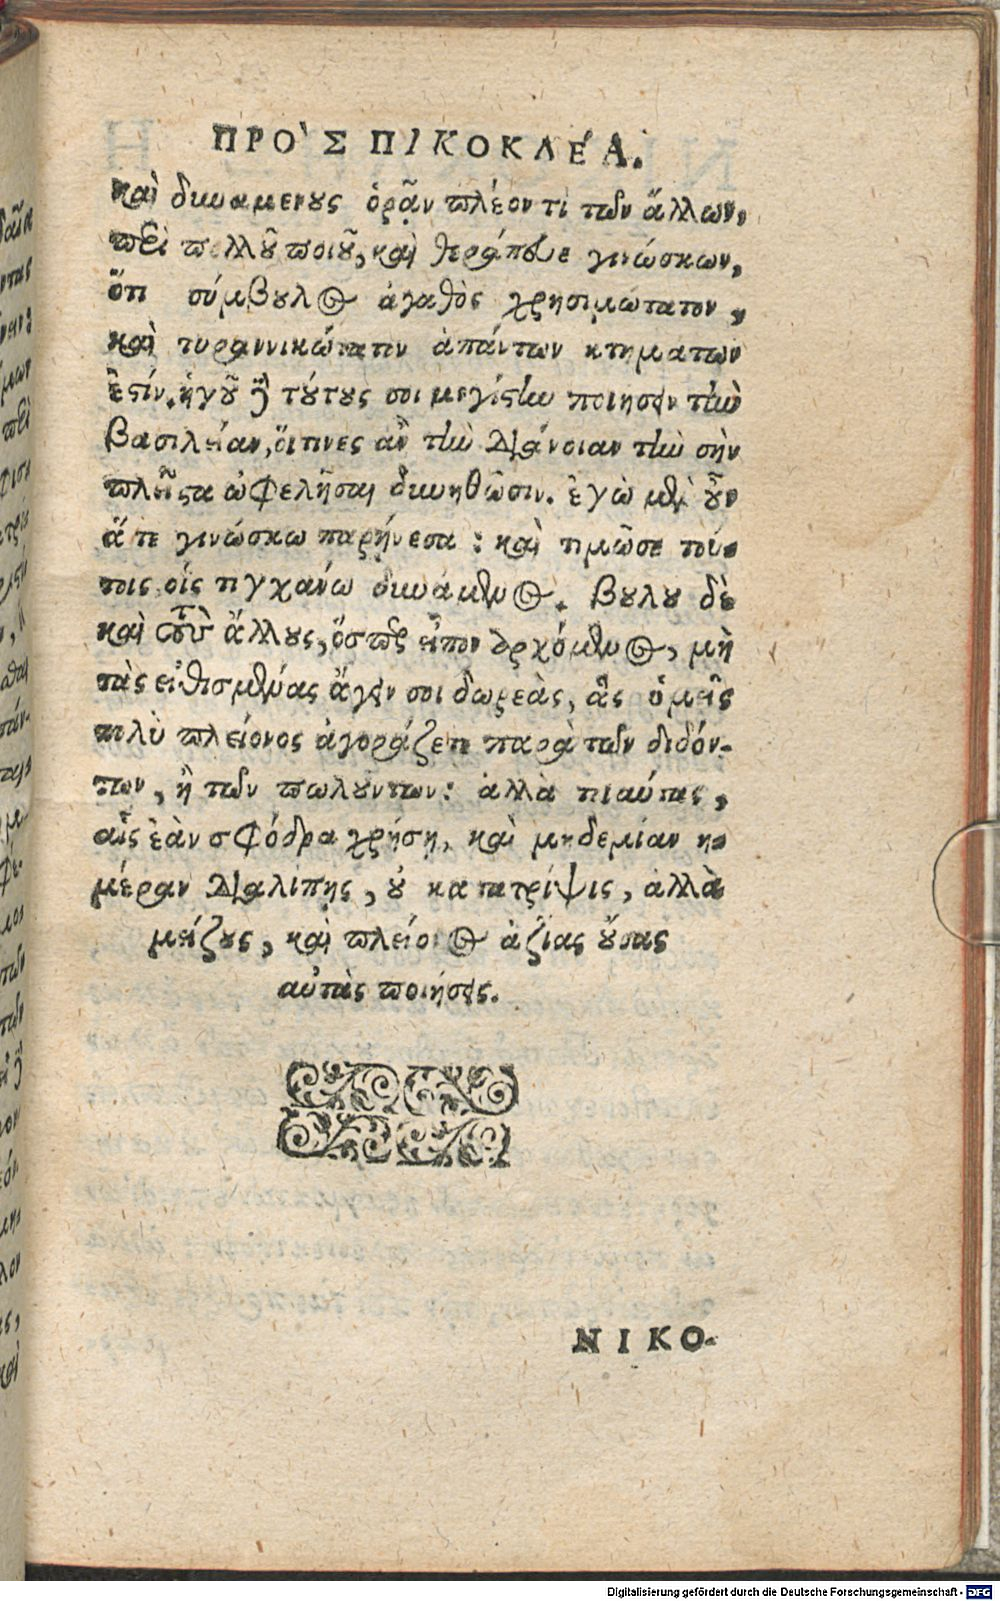 ΠΡΟ'Σ ΠΙΚΟΚΛΕ'Α.
καὶ δυναμένους ὁρᾷν πλέον τι των ἄλλων,
περὶ πολλοῦ ποιοῦ, καὶ θεράπευε γινώσκων,
ὅτι σύμβουλος ἀγαθὸς χρησιμώτατον,
καὶ τυραννικώτατον ἁπάντων κτημάτων
ἐστίν. ἡγοῦ δὲ τούτους σοι μεγίστην ποιήσειν τὴν
βασιλείαν, οἵτινες ἂν τὴν διάνοιαν τὴν σὴν
πλεῖστα ὠφελῆσαι δυνηθῶσιν. ἐγὼ μὲν οὖν
ἅ τε γινώσκω παρῄνεσα: καὶ τιμῶ σε τού-
τοις οἷς τυγχάνω δυνάμενος. βούλου δὲ
καὶ τοὺς ἄλλους, ὥσπερ εἶπον ἀρχόμενος, μὴ
τὰς εἰθισμένας ἄγειν σοι δωρεὰς, ἃς ὑμεῖς
πολὺ πλείονος ἀγοράζετε παρὰ των διδόν-
των, ἢ των πωλούντων: ἀλλὰ τοιαύτας,
αἷς ἐὰν σφόδρα χρήσῃ, καὶ μηδεμίαν η-
μέραν διαλίπῃς, οὐ κατατρίψις, ἀλλὰ
μείζους, καὶ πλείονος ἀξίας οὔσας
αὐτὰς ποιήσεις.
ΝΙΚΟ-
Digitalisierung gefördert durch die Deutsche Forschungsgemeinschaft - DFG